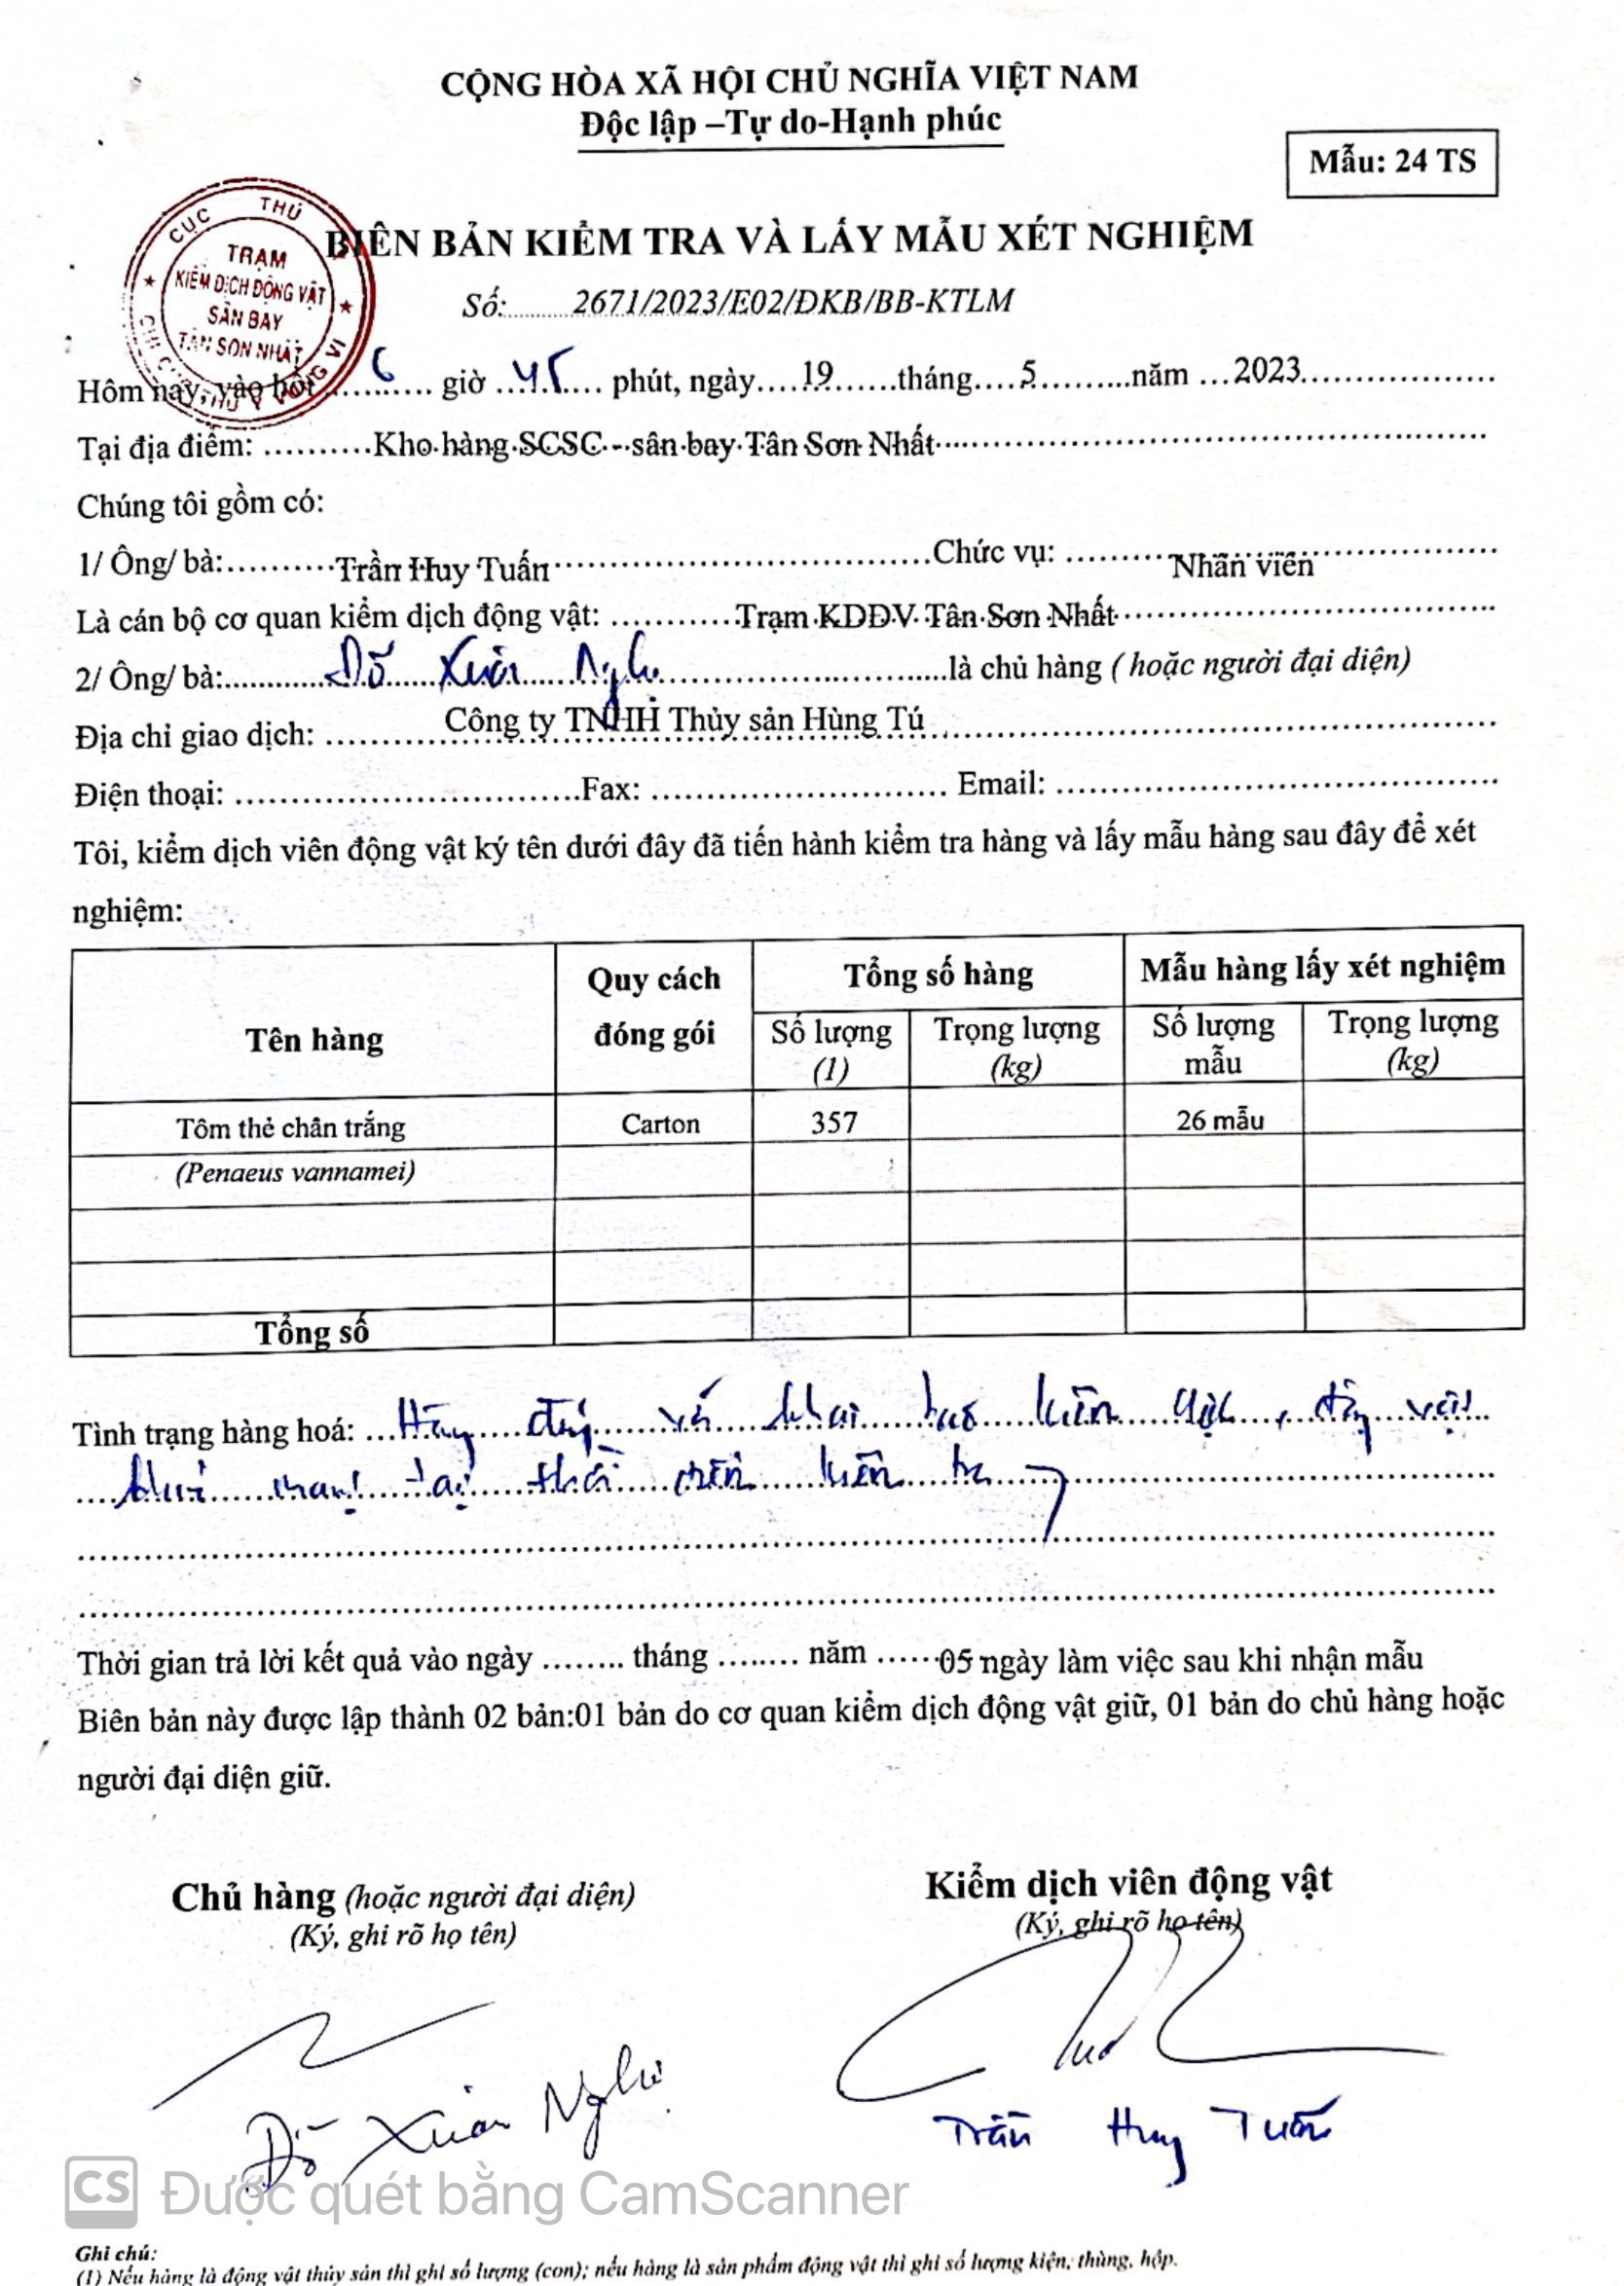 CỘNG HÒA XÃ HỘI CHỦ NGHĨA VIỆT NAM
Độc lập –Tự do-Hạnh phúc
Mẫu: 24 TS
CỤC THÚ
TRẠM
KIỂM DỊCH ĐỘNG VẬT
SÂN BAY
TÂN SƠN NHẤT
BIÊN BẢN KIỂM TRA VÀ LẤY MẪU XÉT NGHIỆM
Số:..........2671/2023/E02/ĐKB/BB-KTLM
Hôm nay, vào hồi ......6.... giờ ...45.... phút, ngày....19......tháng....5.........năm ...2023..................
Tại địa điểm: ..........Kho hàng SCSC - sân bay Tân Sơn Nhất..................
Chúng tôi gồm có:
1/ Ông/ bà:..........Trần Huy Tuấn..................Chức vụ: .........Nhân viên..........
Là cán bộ cơ quan kiểm dịch động vật: ............Trạm KDĐV Tân Sơn Nhất..................
2/ Ông/ bà:..........Đỗ Xuân ..................là chủ hàng ( hoặc người đại diện)
Địa chỉ giao dịch: ..........Công ty TNHH Thủy sản Hùng Tú..................
Điện thoại: ..............................Fax: .......................... Email: ......................................
Tôi, kiểm dịch viên động vật ký tên dưới đây đã tiến hành kiểm tra hàng và lấy mẫu hàng sau đây để xét
nghiệm:
Tên hàng Quy cách đóng gói Tổng số hàng Mẫu hàng lấy xét nghiệm
Số lượng (1) Trọng lượng (kg) Số lượng mẫu Trọng lượng (kg)
Tôm thẻ chân trắng Carton 357 26 mẫu
(Penaeus vannamei)
Tổng số
Tình trạng hàng hoá: ...Hàng đúng với khai báo kiểm dịch, động vật
khoẻ mạnh tại thời điểm kiểm tra
Thời gian trả lời kết quả vào ngày ........ tháng ........ năm ......05 ngày làm việc sau khi nhận mẫu
Biên bản này được lập thành 02 bản:01 bản do cơ quan kiểm dịch động vật giữ, 01 bản do chủ hàng hoặc
người đại diện giữ.
Chủ hàng (hoặc người đại diện)
(Ký, ghi rõ họ tên)
Kiểm dịch viên động vật
(Ký, ghi rõ họ tên)
Đỗ Xuân
Trần Huy Tuấn
CS Được quét bằng CamScanner
Ghi chú:
(1) Nếu hàng là động vật thủy sản thì ghi số lượng (con); nếu hàng là sản phẩm động vật thì ghi số lượng kiện, thùng, hộp.